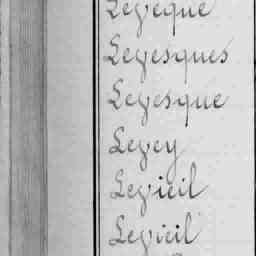 Leveque
Levesques
Levesque
Levey
Levieil
Levieil